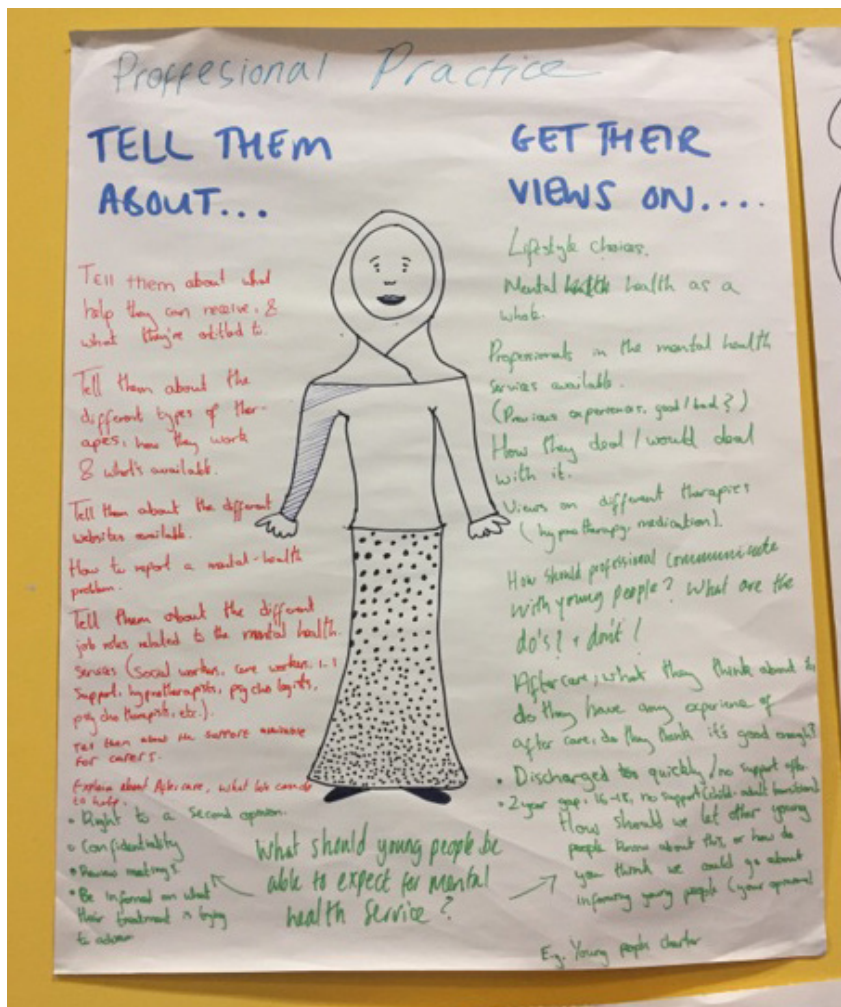 Proffesional Practice
TELL THEM
ABOUT...
Tell them about what
help they can receive, &
what they're entitled to.
Tell them about the
different types of ther-
apes, how they work
& what's available.
Tell them about the different
websites available.
How to report a mental-health
problem.
Tell them about the different
job roles related to the mental health
services (social workers, care workers, 1-1
support, hypnotherapists, psychologists,
psychotherapists, etc.).
Tell them about the support available
for carers.
Explain about Aftercare, what
to help.
• Right to a second opinion.
• Confidentiality
• Review meetings
• Be informed on what
their treatment is trying
to
GET THEIR
VIEWS ON....
Lifestyle choices.
Mental health as a
whole.
Professionals in the mental health
services available.
(Previous experiences, good/bad?)
How they deal/would deal
with it.
Views on different therapies
(hypnotherapy, medication).
How should professional communicate
with young people? What are the
do's? + don't!
Aftercare, what they think about it,
do they have any experience of
after care, do they think it's good enough?
• Discharged too quickly/no support after
• 2 year gap, 16-18, no support (child-adult transition)
How should we let other young
people know about this, or how do
you think we could go about
informing young people (your opinion)
E.g. Young people charter
What should young people be
able to expect for mental
health service?